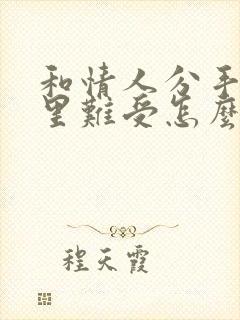 和情人分手
里難受怎麼
程天霞